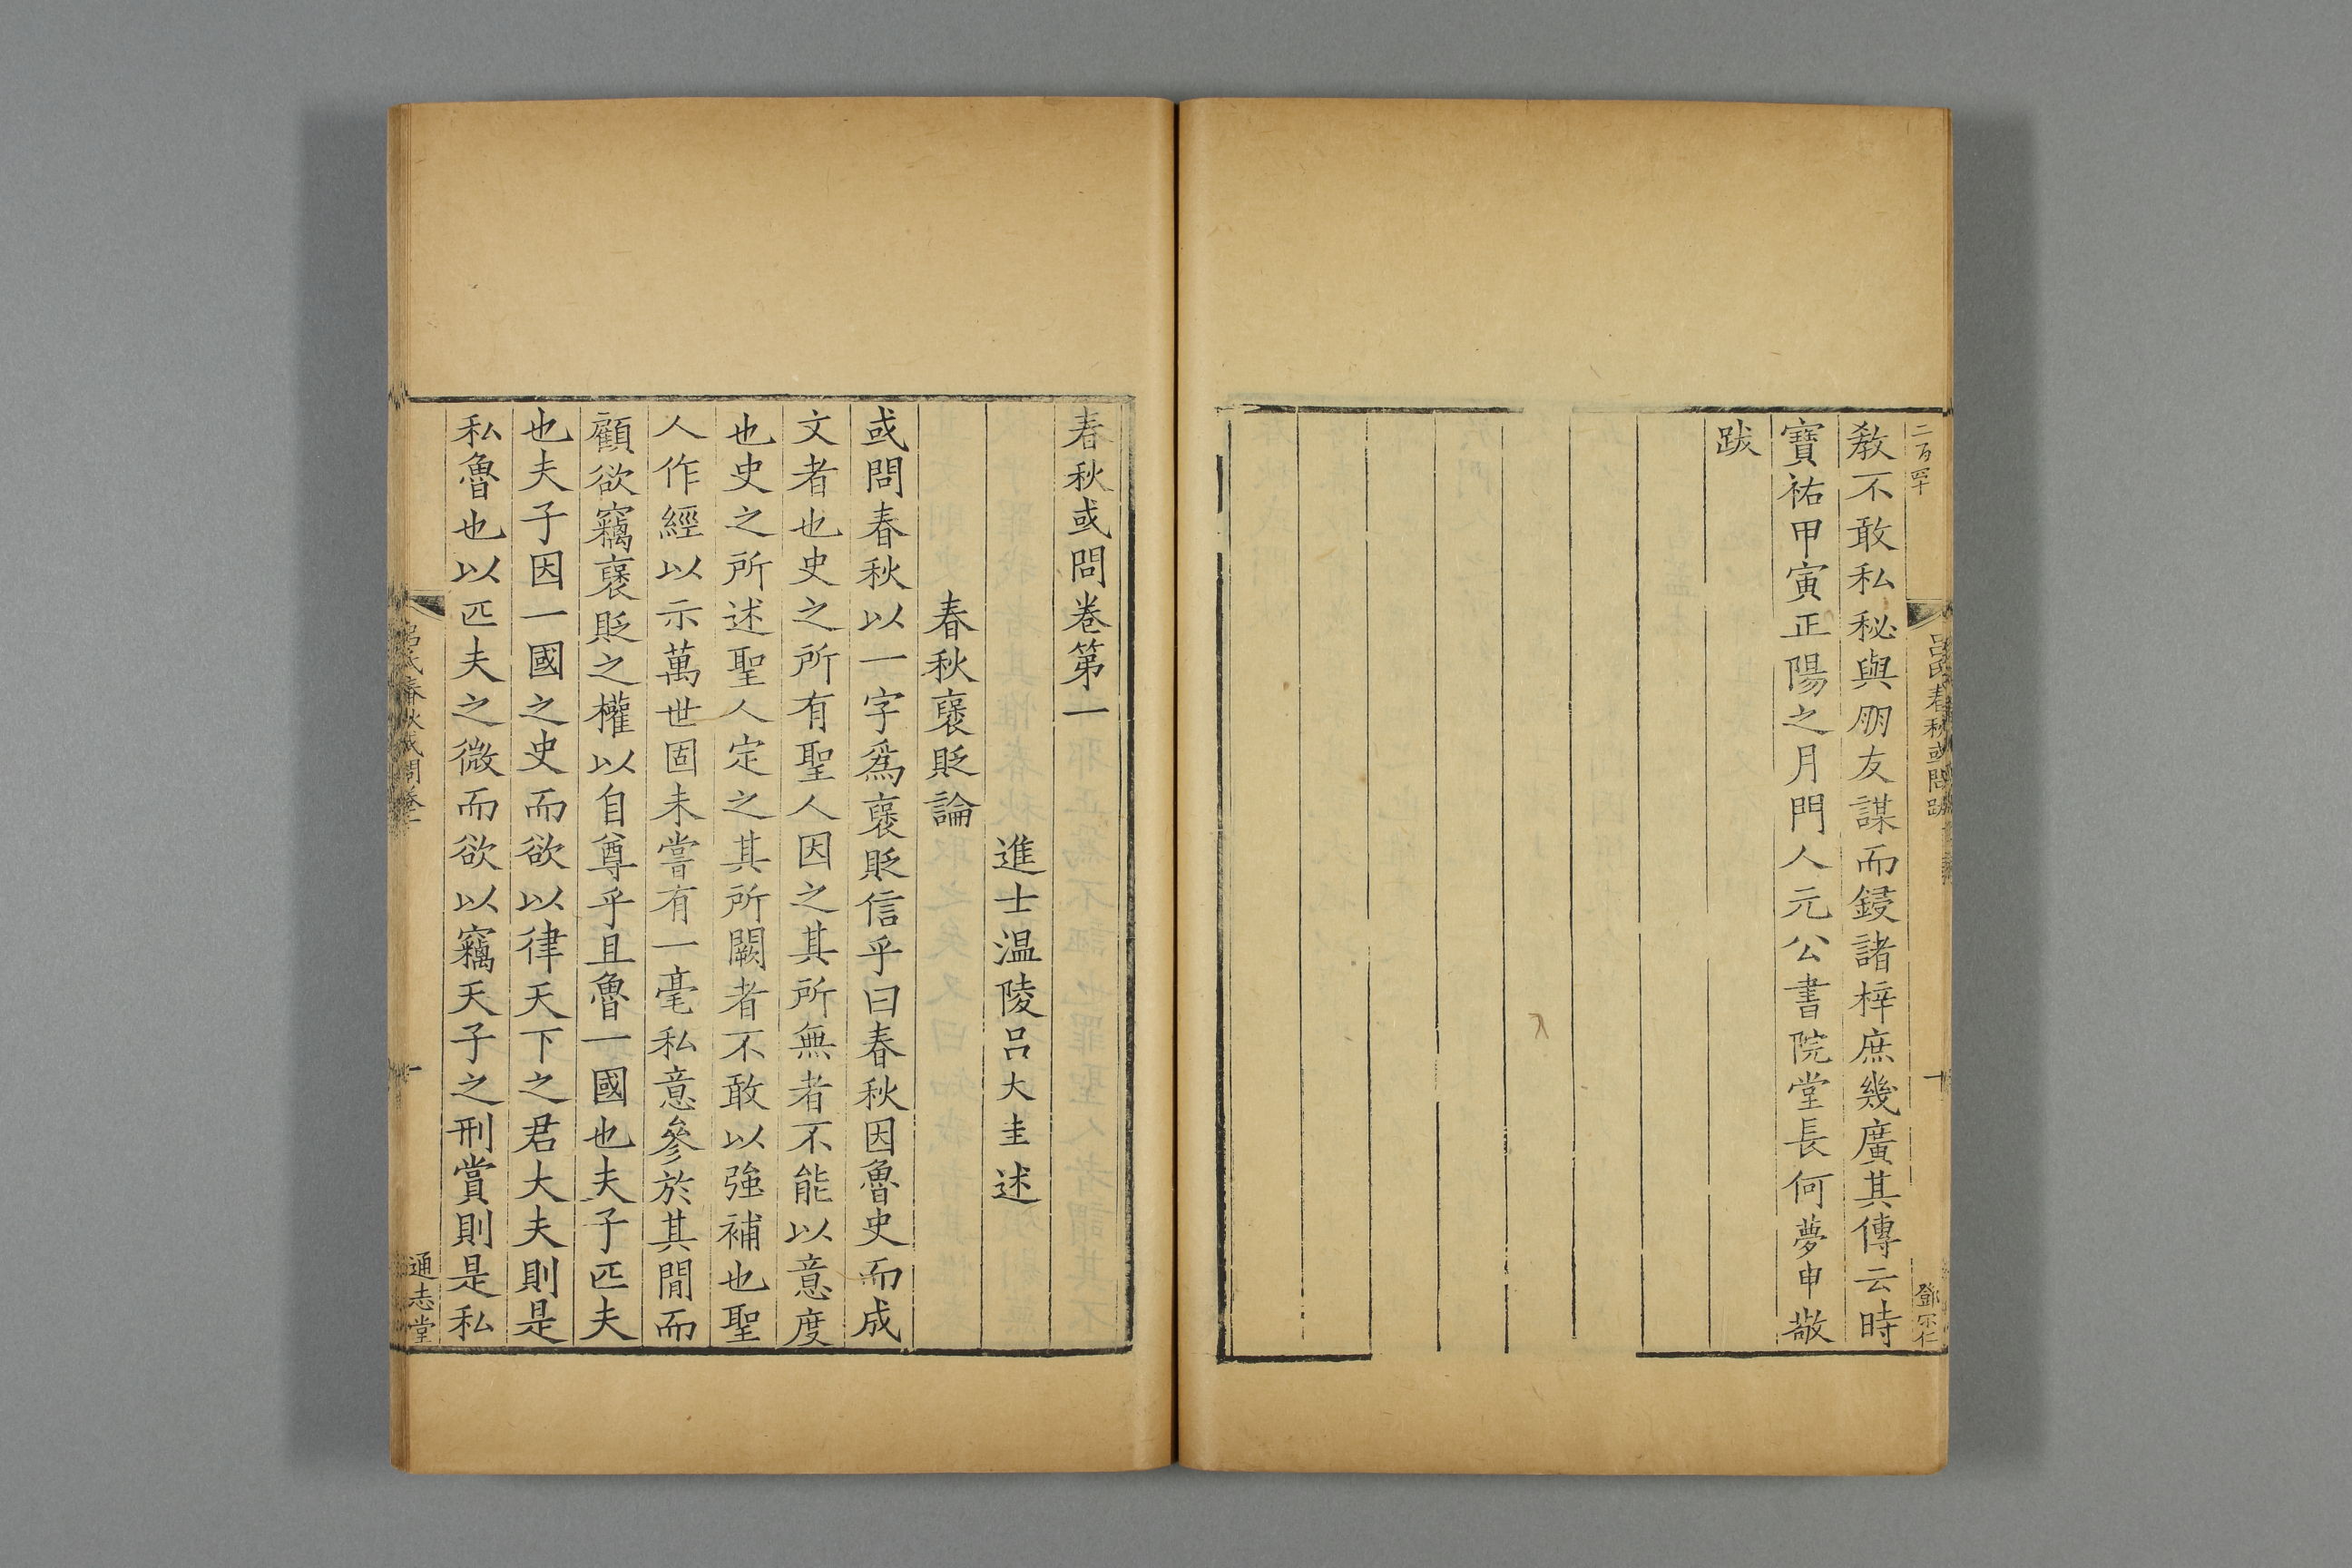 二百四十
呂氏春秋或問跋
十
鄧宗仁
教不敢私秘與朋友謀而鋟諸梓庶幾廣其傳云時
寶祐甲寅正陽之月門人元公書院堂長何夢申敬
跋
春秋或問卷第一
進士温陵呂大圭述
春秋褒貶論
或問春秋以一字爲褒貶信乎曰春秋因魯史而成
文者也史之所有聖人因之其所無者不能以意度
也史之所述聖人定之其所闕者不敢以強補也聖
人作經以示萬世固未嘗有一毫私意參於其閒而
顧欲竊褒貶之權以自尊乎且魯一國也夫子匹夫
也夫子因一國之史而欲以律天下之君大夫則是
私魯也以匹夫之微而欲以竊天子之刑賞則是私
呂氏春秋或問卷一
一
通志堂